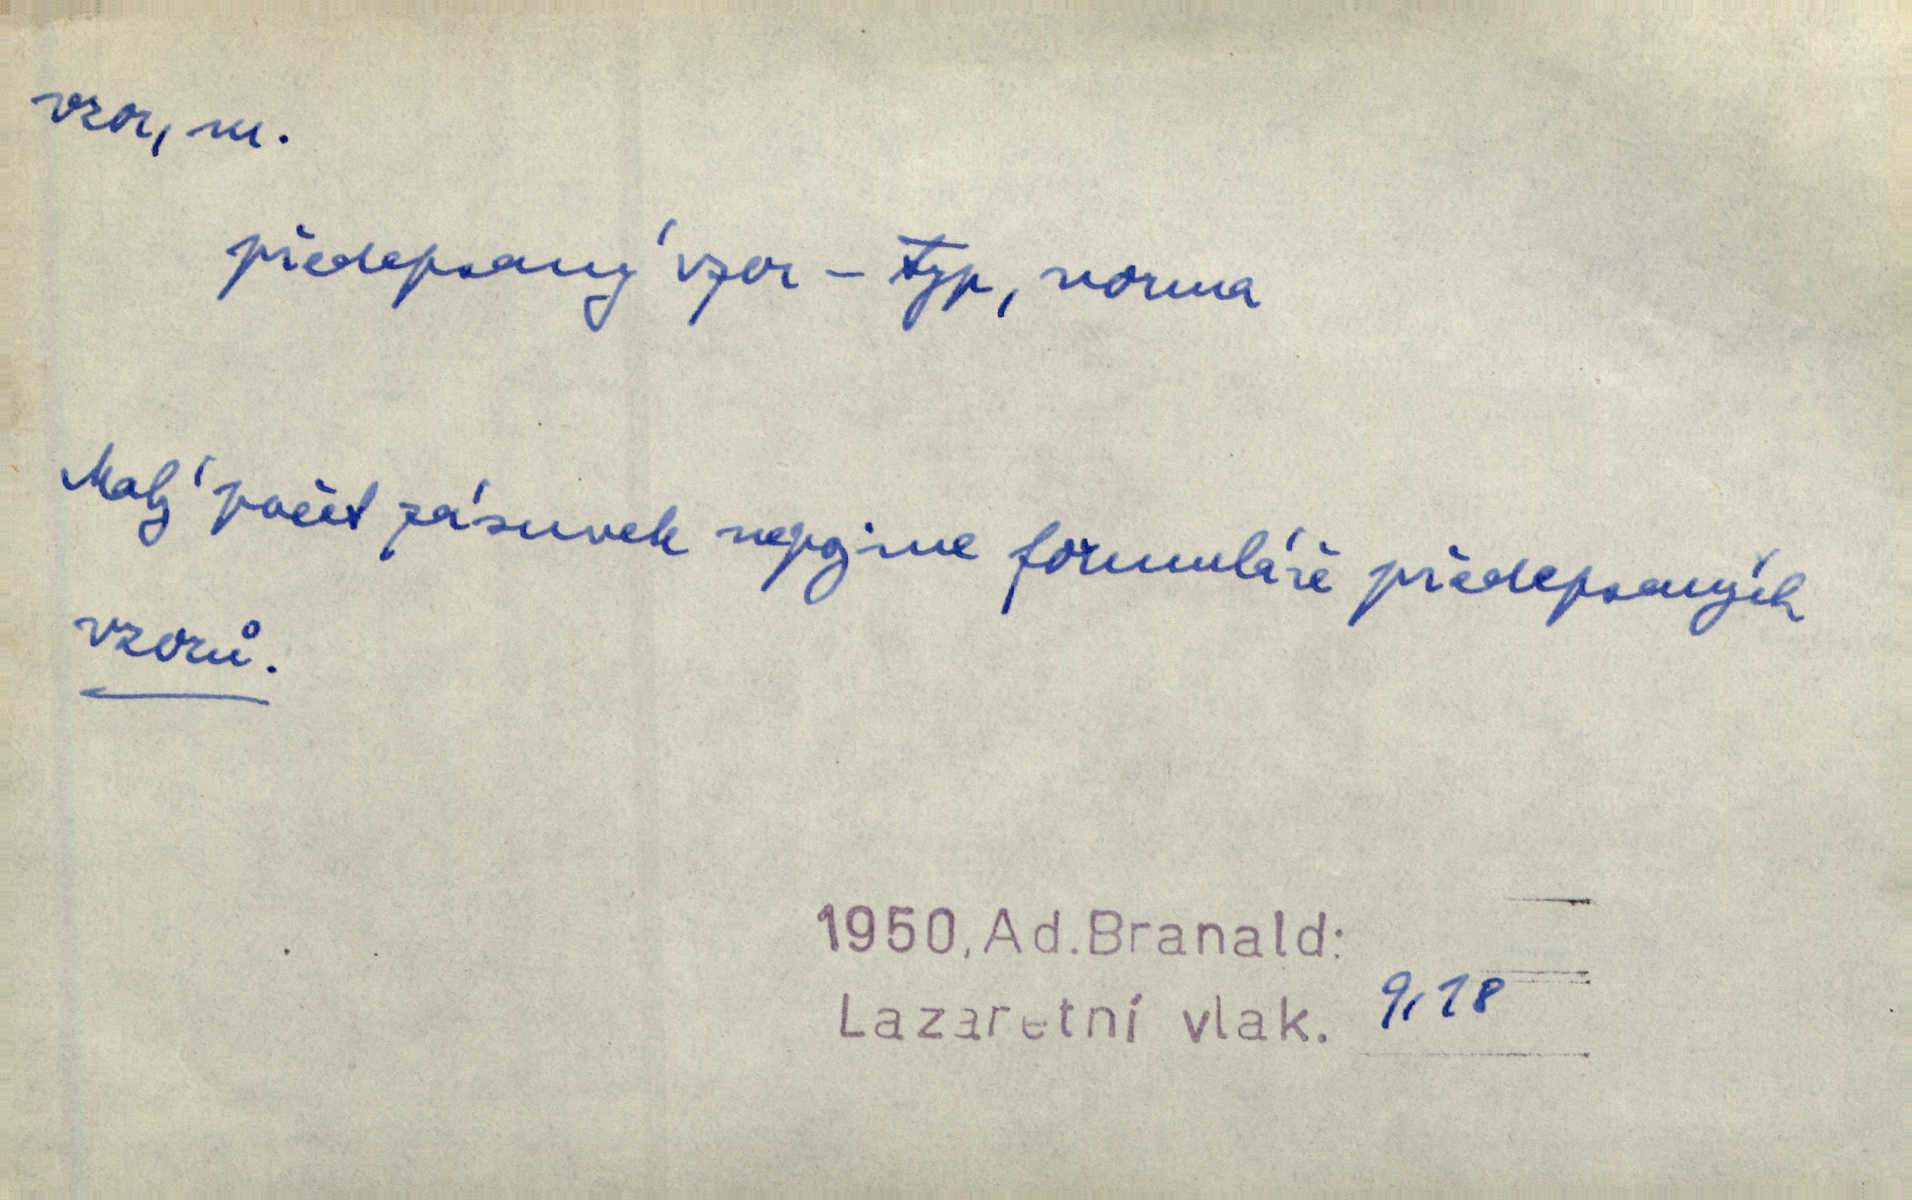 vzor, m.
předepsaný vzor – typ, norma
Malý počet zásuvek nepojme formuláře předepsaných
vzorů.
1950, Ad. Branald:
Lazaretní vlak. 9,18